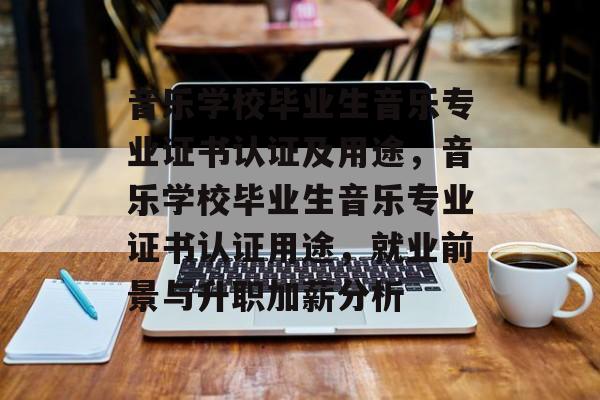 音乐学校毕业生音乐专
业证书认证及用途，音
乐学校毕业生音乐专业
证书认证用途，就业前
景与升职加薪分析